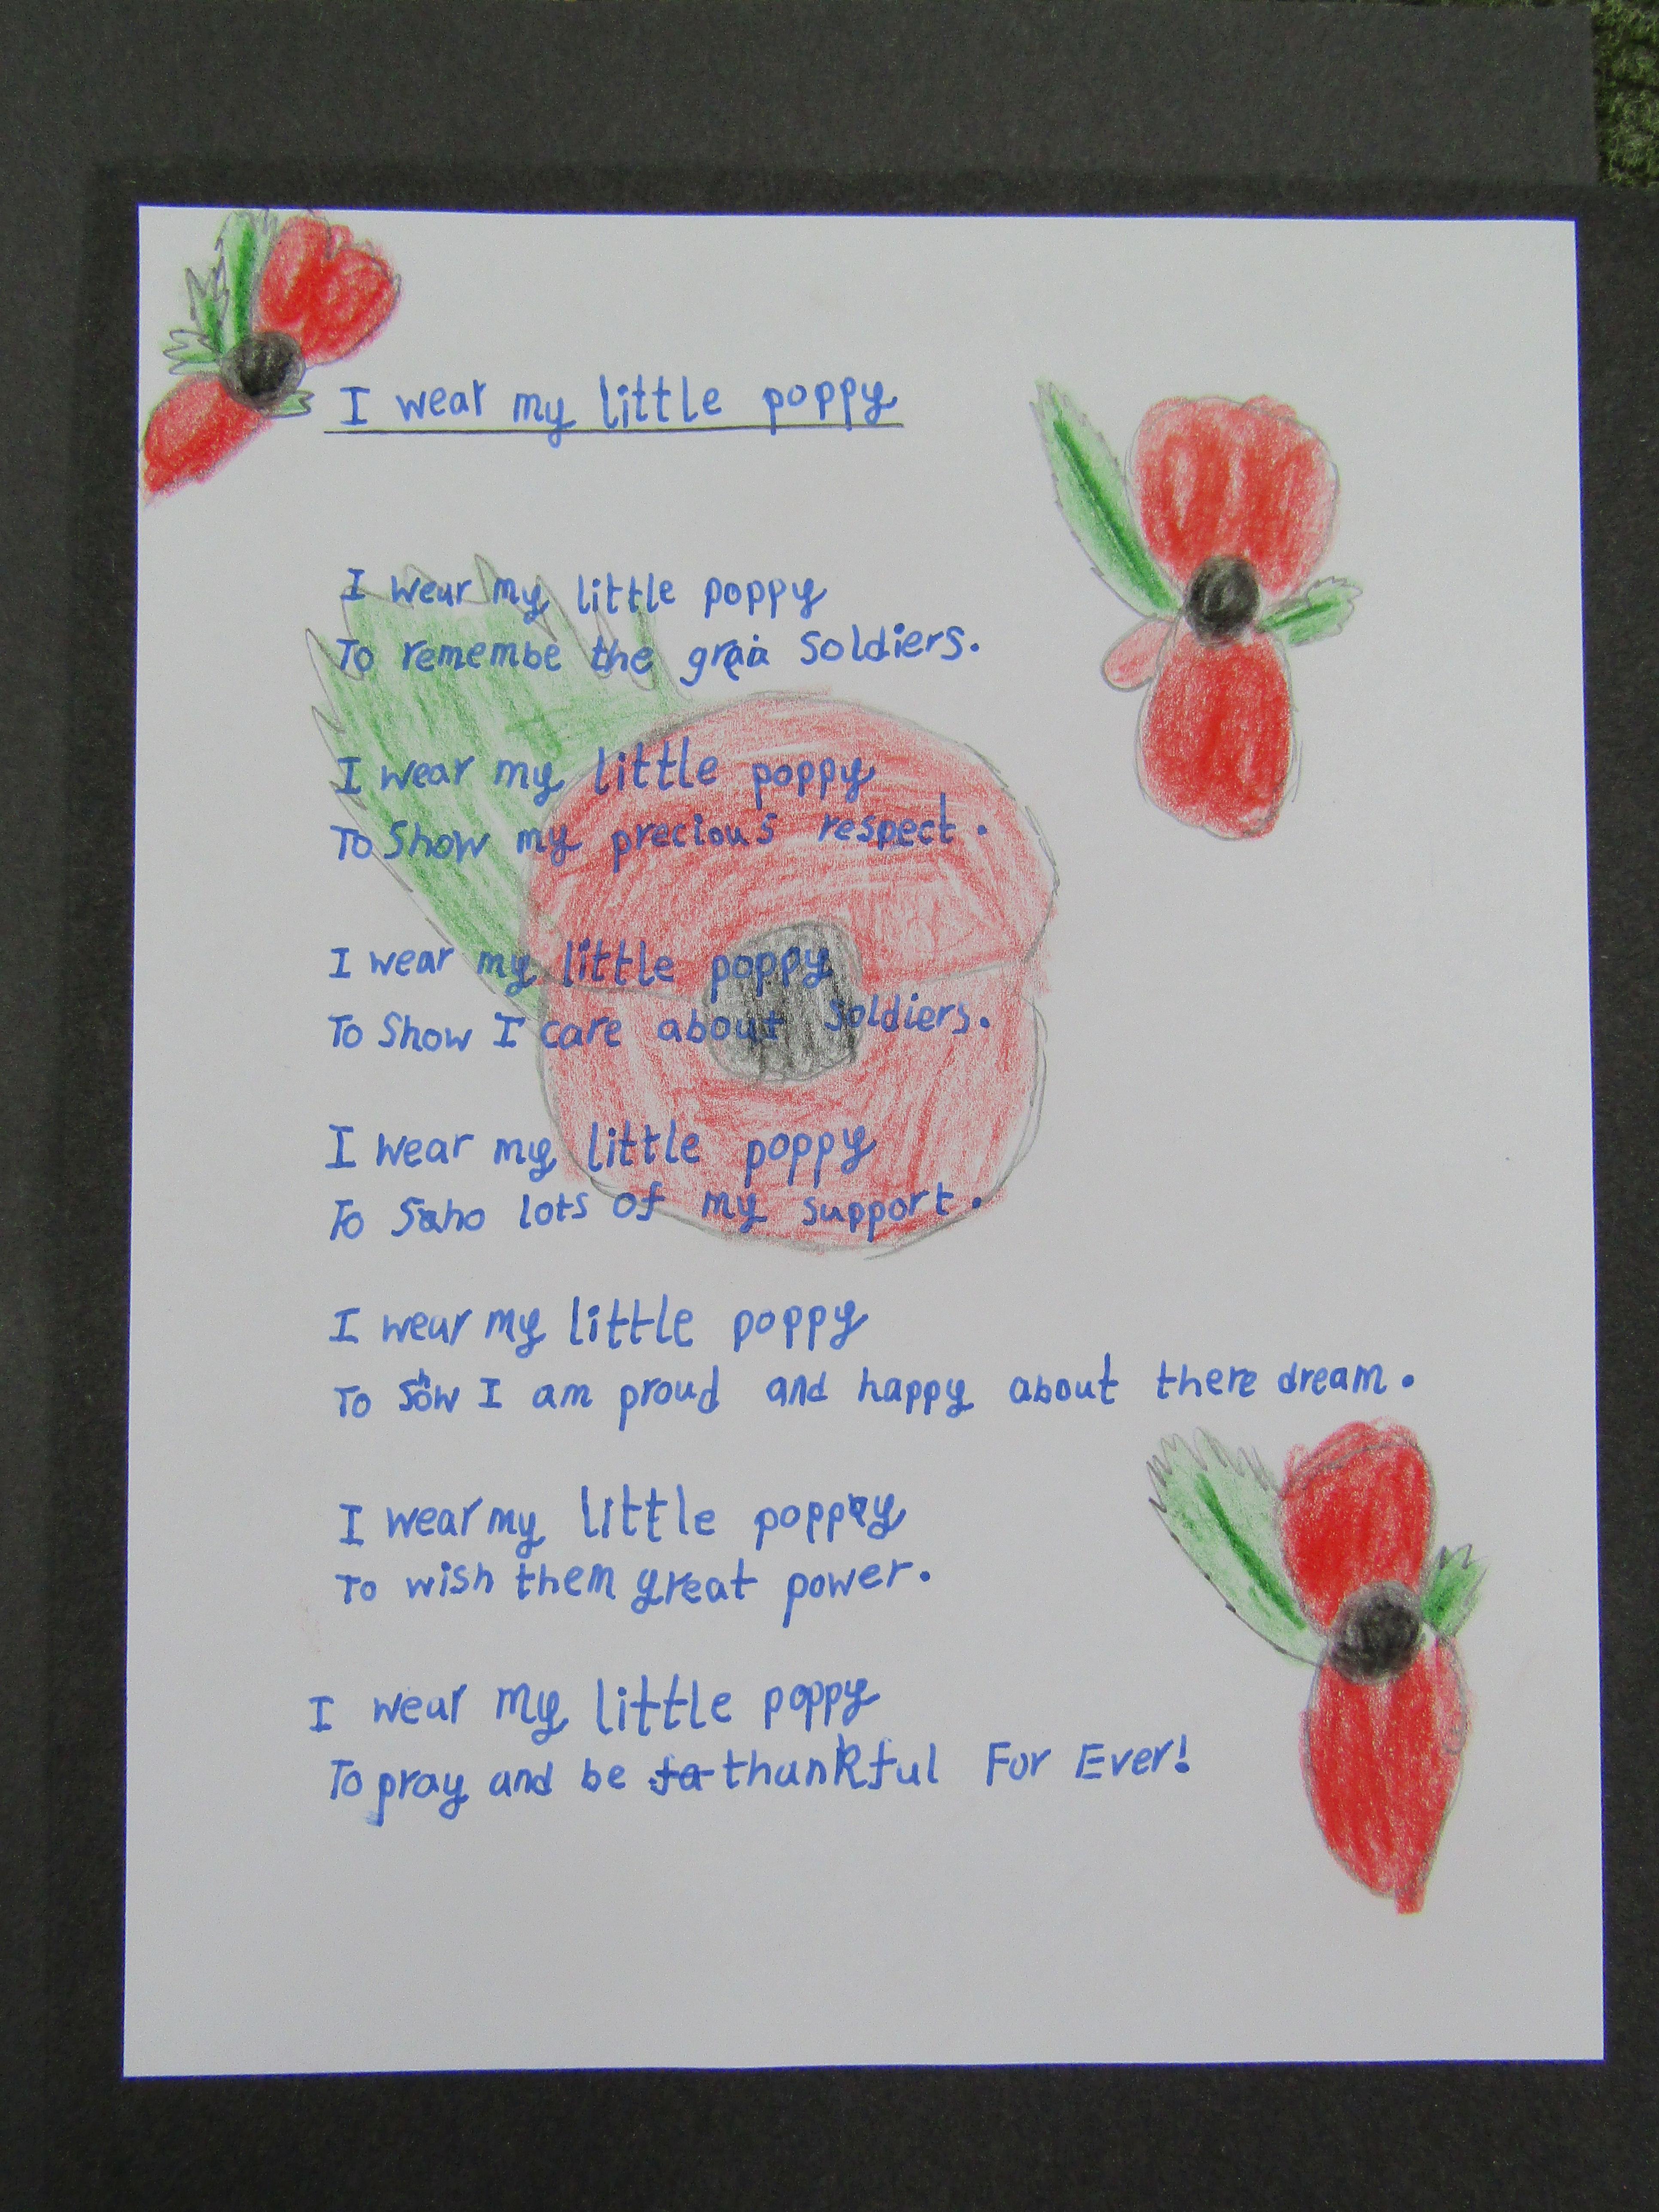 I wear my little poppy
I wear my little poppy
To remembe the soldiers.
I wear my little poppy
To Show my precious respect.
I wear my little poppy
To Show I care about soldiers.
I wear my little poppy
To lots of my support.
I wear my little poppy
To Show I am proud and happy about there dream.
I wear my little poppy
To wish them great power.
I wear my little poppy
To pray and be thankful For Ever!